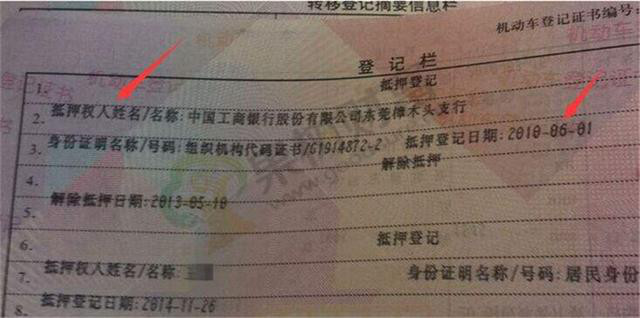 转移登记摘要信息栏
机动车登记证书编号:
登记栏
1. 抵押登记
2. 抵押权人姓名/名称:中国工商银行股份有限公司东莞樟木头支行
3. 身份证明名称/号码:组织机构代码证书/C1914872-2 抵押登记日期:2010-06-01
4. 解除抵押
解除抵押日期:2013-05-10
5.
6. 抵押登记
7. 抵押权人姓名/名称: 身份证明名称/号码:居民身份
8. 抵押登记日期:2014-11-26